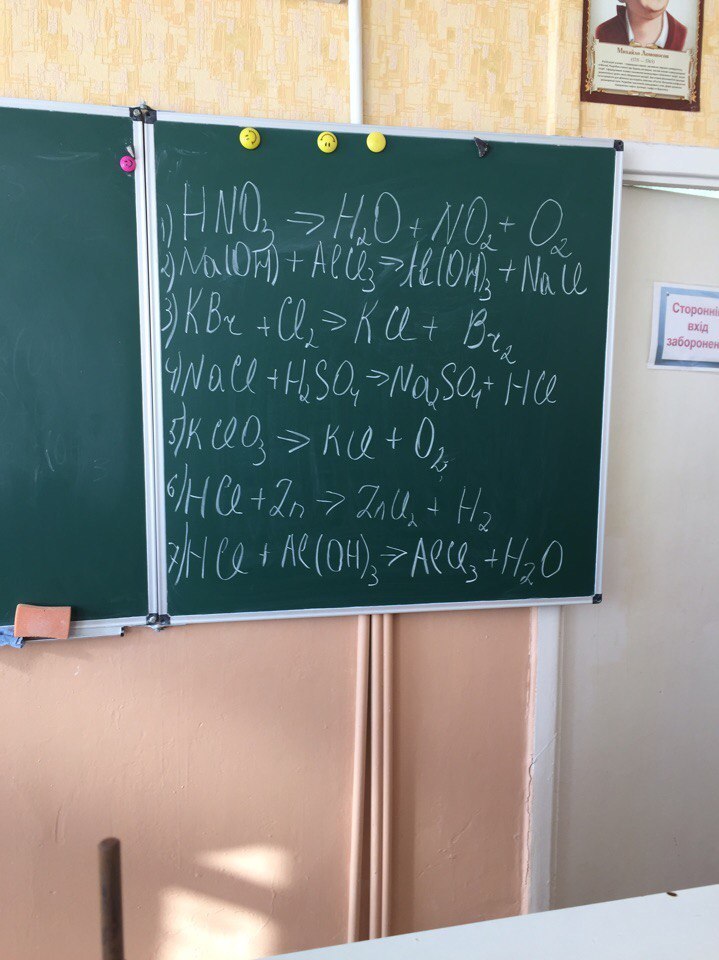 Михайло Ломоносов
1) HNO₃ ⇒ H₂O + NO₂ + O₂
2) Na(OH) + AlCl₃ ⇒ Al(OH)₃ + NaCl
3) KBr + Cl₂ ⇒ KCl + Br₂
4) NaCl + H₂SO₄ ⇒ Na₂SO₄ + HCl
5) KClO₃ ⇒ KCl + O₂
6) HCl + Zn ⇒ ZnCl₂ + H₂
7) HCl + Al(OH)₃ ⇒ AlCl₃ + H₂O
Сторонні
вхід
заборонен